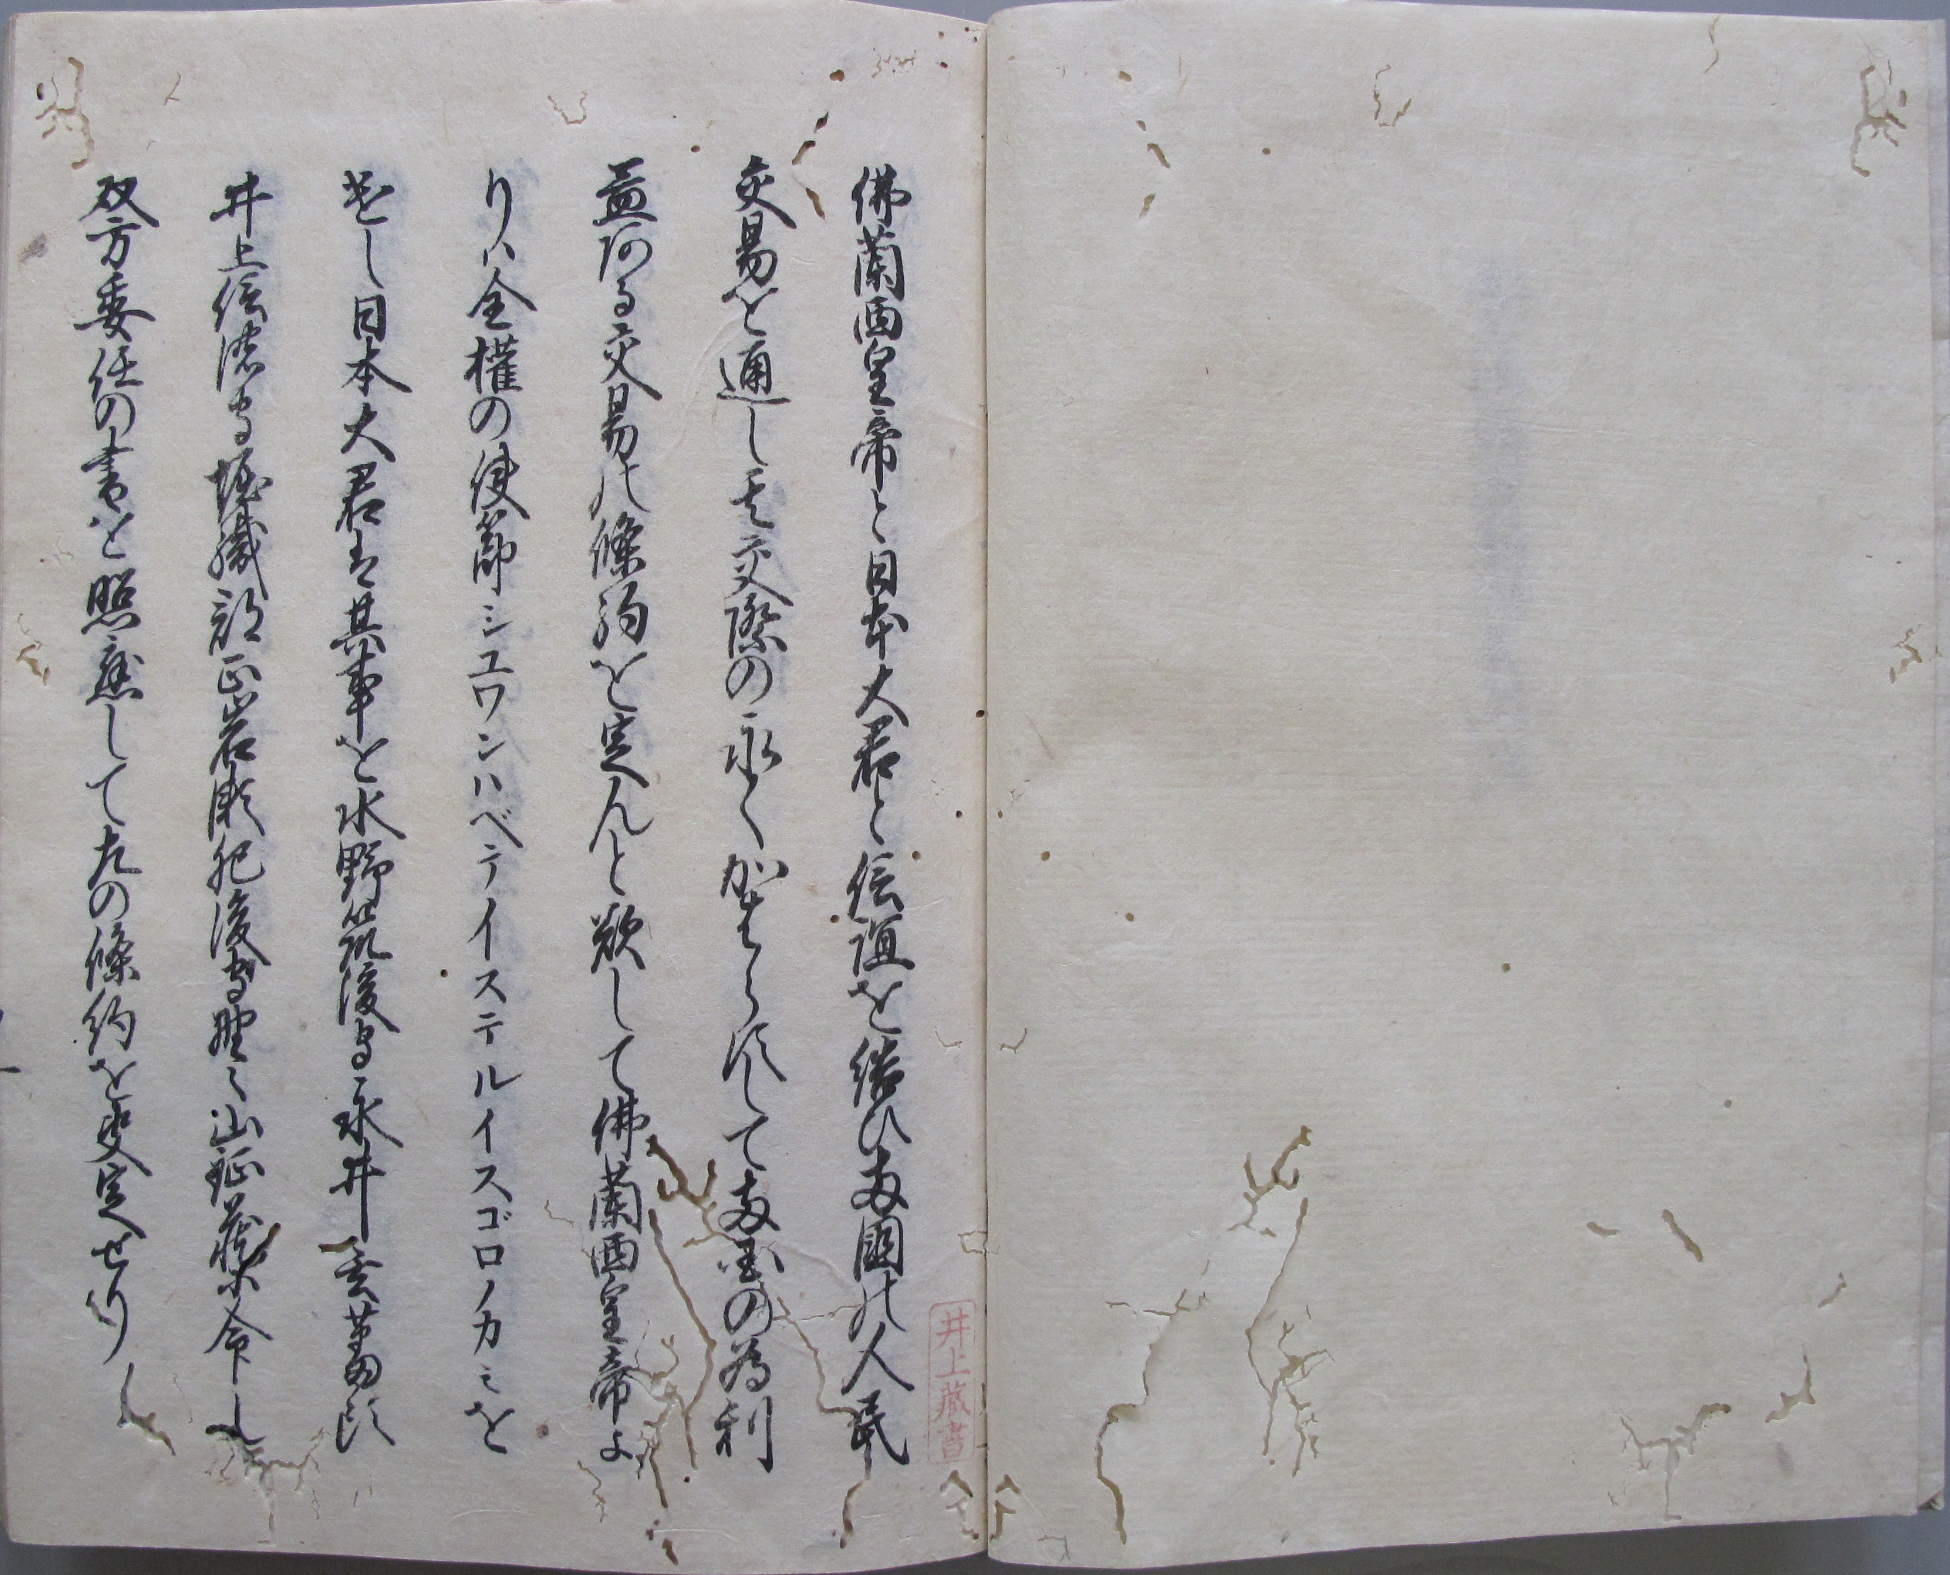 佛蘭西皇帝と日本大君と信誼を結ひ両國の人民
交易を通し其交際の永くかはらすして両国の為利
益ある交易の條約を定んと欲して佛蘭西皇帝よ
りハ全權の使節シユワンハベテイステルイスゴロノカミを
差し日本大君は其事を水野筑後守永井玄蕃頭
井上信濃守堀織部正岩瀬肥後守野々山鉦蔵に命し
双方委任の書を照應して左の條約を更定せり
井上藏書